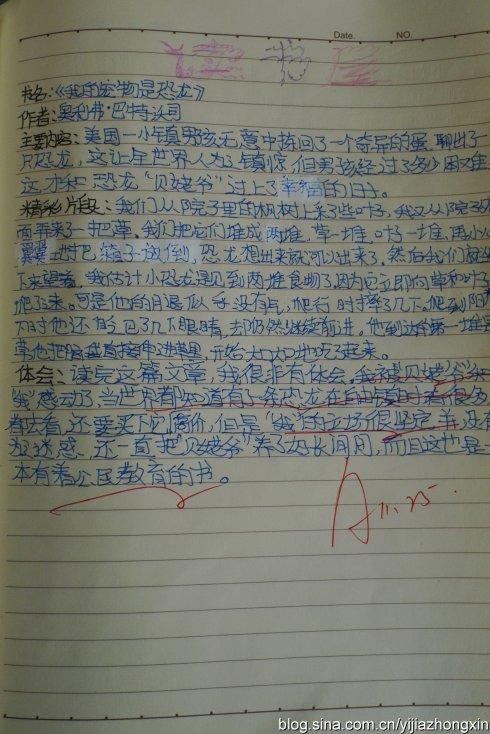 Date. NO.
读物
书名:《我的宠物是恐龙》
作者:奥利弗·巴特沃司
主要内容:美国一小镇男孩无意中拣回了一个奇异的蛋,
只恐龙,这让全世界人为了镇惊,但男孩经过了多少困难
这才和恐龙"贝娣爷"过上了幸福的日子。
精彩片段:我们从院子里的枫树上采了些叶子,我又从院子
面弄来一把草。我们把它们堆成两堆,草一堆,叶子一堆,再小心
翼翼地把箱子放倒,恐龙想出来就可以出来了,然后我们
下来望着,我估计小恐龙是见到两堆食物了,因为它立即向草和叶子
爬了来。可是他的后退似乎没有气,爬行时摔了几下。爬到阳
下时他还眨巴了几下眼睛,却仍然继续前进。他到达第一堆
草,他把脑袋直接伸进草里,开始大口大口地吃了起来。
体会:读完这篇文章,我很非有体会,我被"贝娣爷"和
"我"感动了,当世界都知道有了一条恐龙在自由镇时,有很多
都去看,还要买下它高价,但是"我"的立场很坚定,并没有
为迷惑、还一直把"贝娣爷"养了好长间间,而且这也是一
本有着公民教育的书。
A 11.25.
blog.sina.com.cn/yijiazhongxin